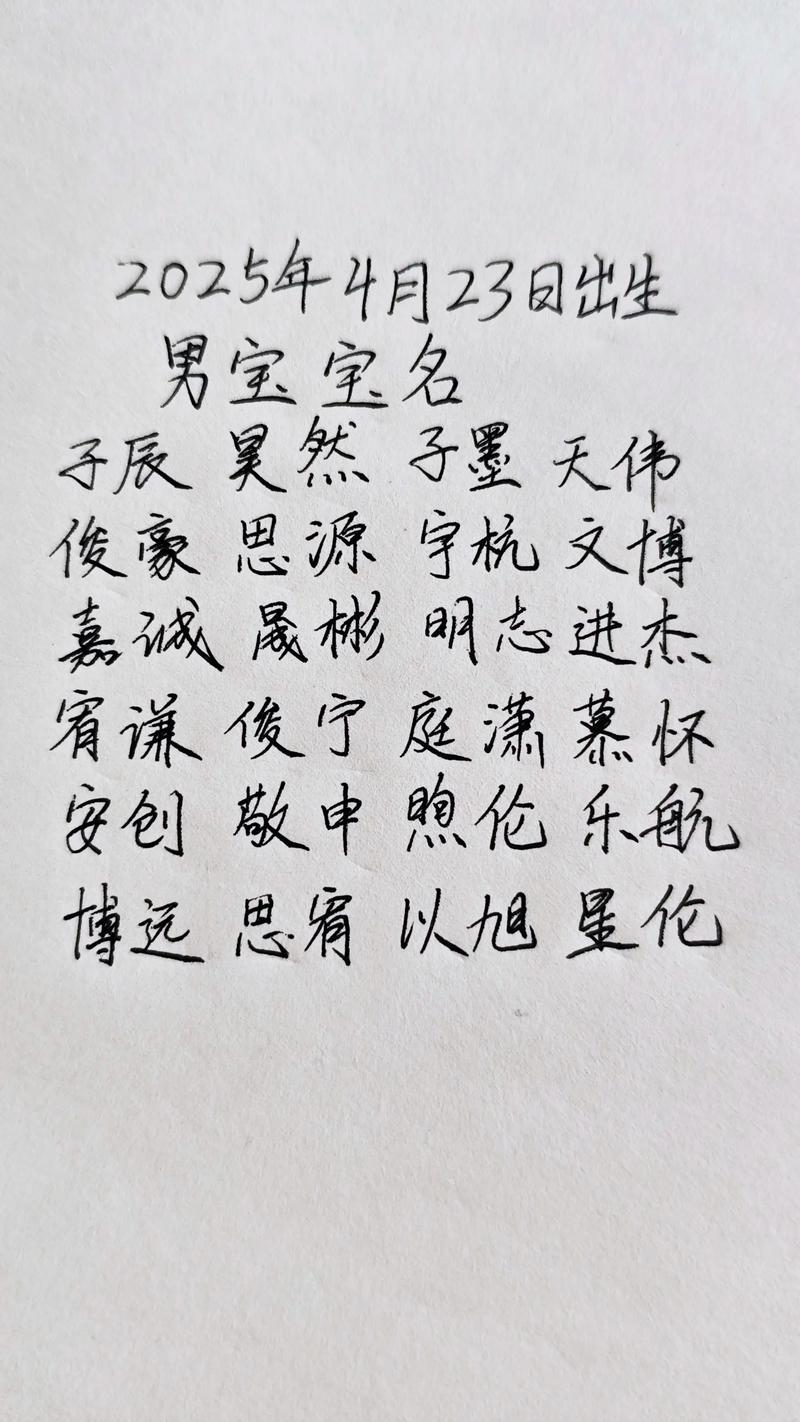 2025年4月23日出生
男宝宝名
子辰 昊然 子墨 天伟
俊豪 思源 宇杭 文博
嘉诚 晟彬 明志 进杰
宥谦 俊宁 庭潇 慕怀
安创 敬申 煦伦 乐航
博远 思宥 以旭 星伦